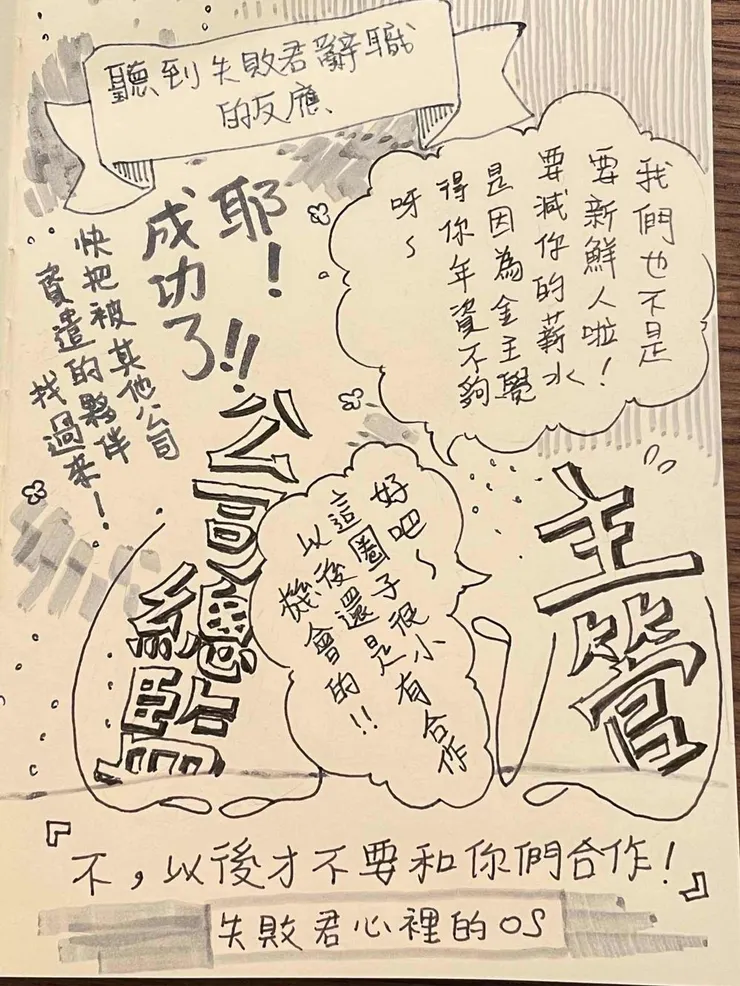 聽到失敗君辭職
的反應、
我們也不是
要新鮮人啦！
要減你的薪水
是因為金主覺
得你年資不夠
呀～
主管
好吧～
這圈子很小
以後還是有合作
機會的!!
耶！
成功了!!
快把被其他公司
資遣的夥伴
找過來！
公司總點
『不，以後才不要和你們合作！』
失敗君心裡的OS